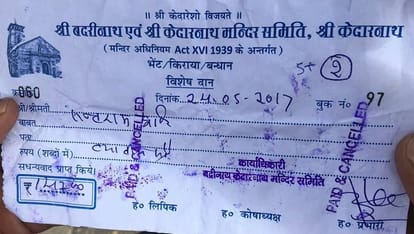 ॥ श्री केदारेशो विजयते ॥
श्री बदरीनाथ एवं श्री केदारनाथ मन्दिर समिति, श्री केदारनाथ
(मन्दिर अधिनियम Act XVI 1939 के अन्तर्गत)
भेंट/किराया/बन्धान
विशेष दान
5+ 2
क्र 060 दिनांक 24.05-2017 बुक नं० 97
श्री/श्रीमती
बाबत
पता
रुपया (शब्दों में)
सधन्यवाद प्राप्त किये।
₹
PAID & CANCELLED
कार्याधिकारी
बदरीनाथ केदारनाथ मन्दिर समिति
PAID & CANCELLED
ह० लिपिक ह० कोषाध्यक्ष ह० प्रभारी